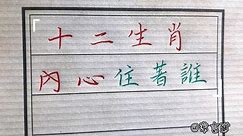 十二生肖
內心住著誰